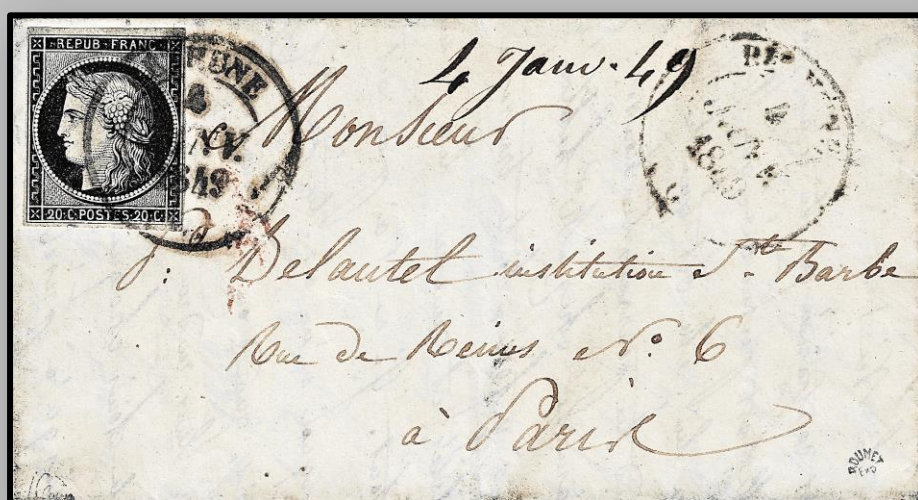 REPUB·FRANC
20·C·POSTES·20·C
4
NV.
849
4 Janv. 49
4
JANV.
1849
Monsieur
J: Delautel institution Ste Barbe
Rue de Reims No. 6
à Paris
ROUMET
EXP